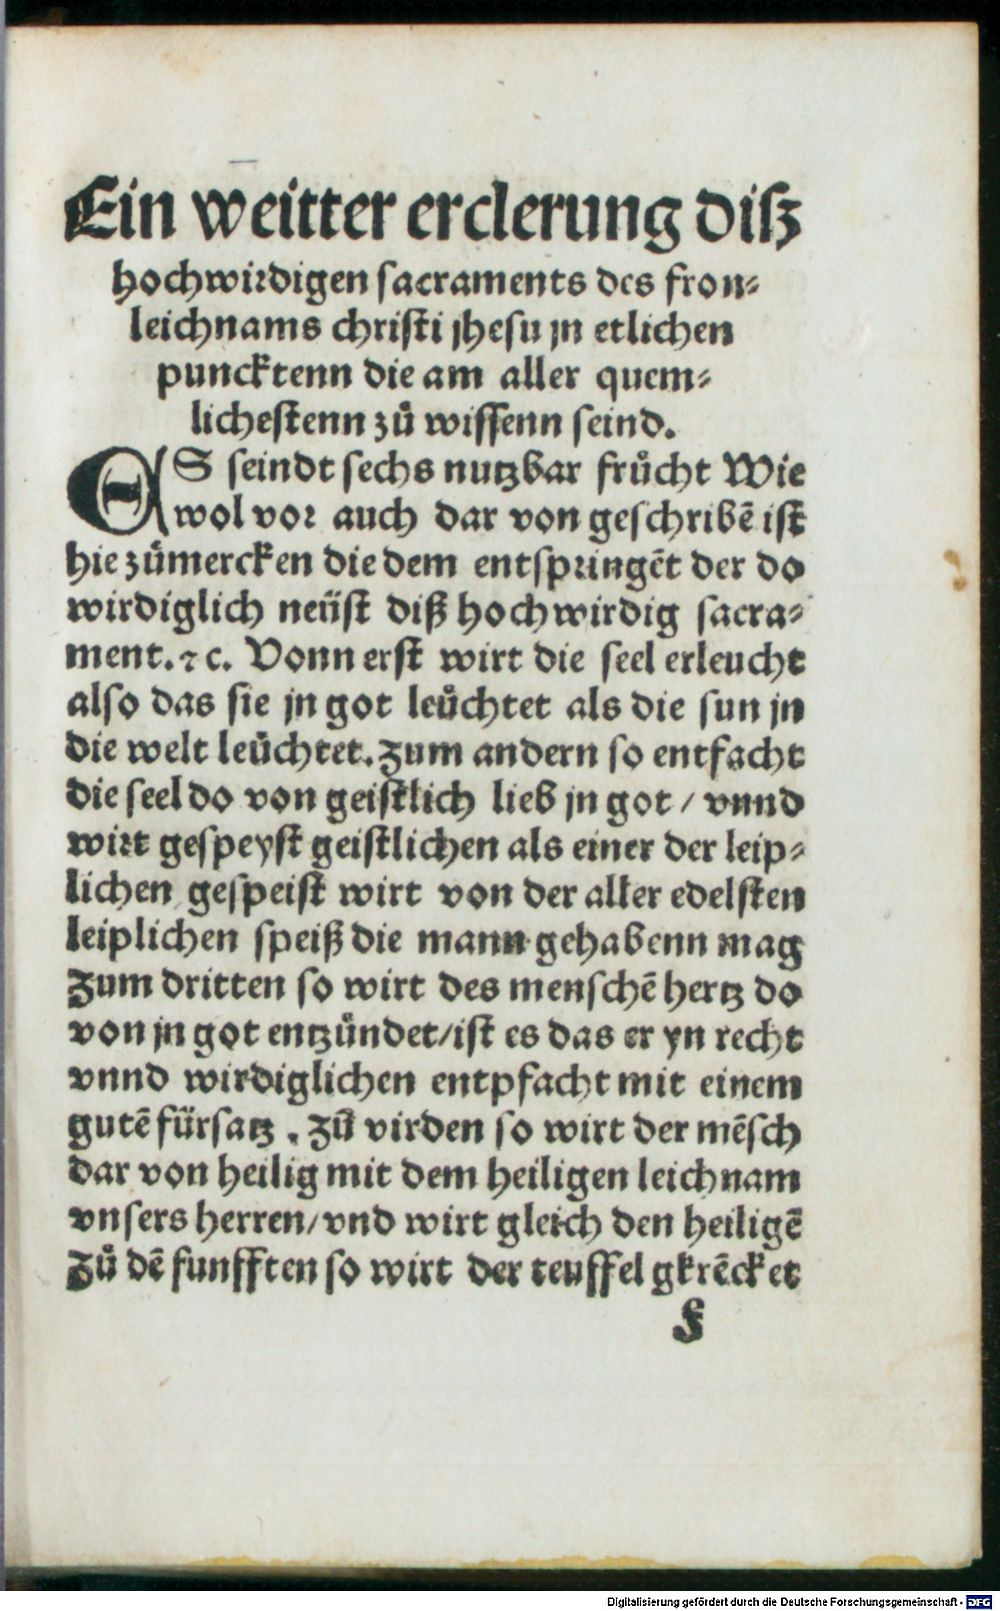 Ein weitter erclerung diſz
hochwirdigen ſacraments des fron⸗
leichnams chriſti jheſu jn etlichen
puncktenn die am aller quem⸗
licheſtenn zů wiſſenn ſeind.
ES ſeindt ſechs nutzbar frůcht Wie
wol vor auch dar von geſchribē iſt
hie zůmercken die dem entſpringēt der do
wirdiglich neüſt diß hochwirdig ſacra⸗
ment. ⁊c. Vonn erſt wirt die ſeel erleucht
alſo das ſie jn got leůchtet als die ſun jn
die welt leůchtet. Zum andern ſo entfacht
die ſeel do von geiſtlich lieb jn got / vnnd
wirt geſpeyſt geiſtlichen als einer der leip⸗
lichen geſpeiſt wirt von der aller edelſten
leiplichen ſpeiß die mann gehabenn mag
Zum dritten ſo wirt des menſchē hertz do
von jn got entzündet/iſt es das er yn recht
vnnd wirdiglichen entpfacht mit einem
gutē fürſatz. Zů virden ſo wirt der mēſch
dar von heilig mit dem heiligen leichnam
vnſers herren/vnd wirt gleich den heiligē
Zů dē funfften ſo wirt der teuffel gkrēcket
f
Digitalisierung gefördert durch die Deutsche Forschungsgemeinschaft - DFG